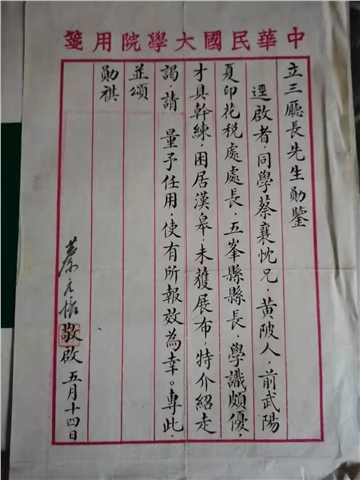 中華民國大學院用箋
立三廳長先生勛鑒
逕啟者，同學蔡襄忱兄，黃陂人，前武陽
夏印花稅處處長，五峯縣縣長，學識頗優，
才具幹練，困居漢皋，未獲展布，特介紹走
謁，請 量予任用，使有所報效為幸。專此，
並頌
勛祺
蔡元培 敬啟 五月十四日